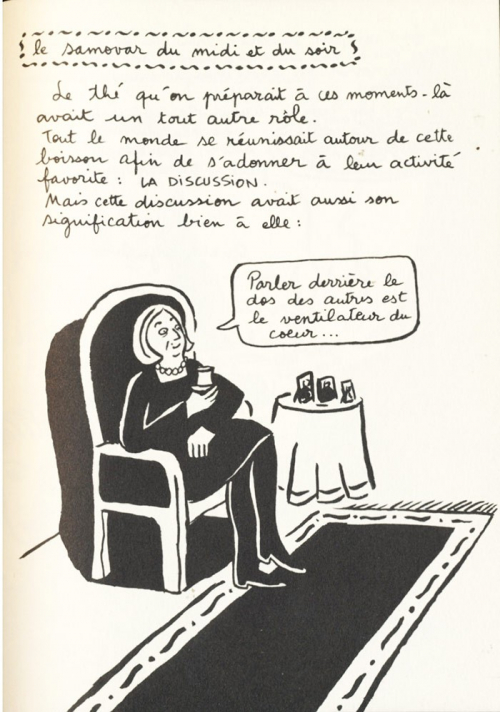 le samovar du midi et du soir
Le thé qu'on préparait à ces moments-là
avait un tout autre rôle.
Tout le monde se réunissait autour de cette
boisson afin de s'adonner à leur activité
favorite : LA DISCUSSION.
Mais cette discussion avait aussi son
signification bien à elle :
Parler derrière le
dos des autres est
le ventilateur du
coeur...